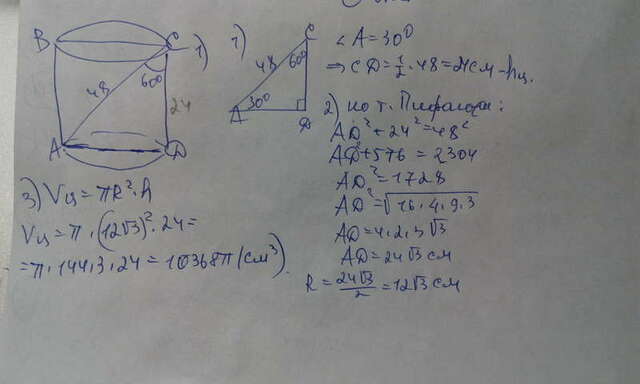 B
C
1)
60°
48
24
A
D
1)
C
48
60°
A
30°
D
∠A=30°
⇒ CD=1/2·48=24см-hц.
2) по т. Пифагора:
AD²+24²=48²
AD²+576=2304
AD²=1728
AD²=√16·4·9·3
AD=4·2·3√3
AD=24√3 см
R=24√3/2=12√3 см
3) Vц=πR²·h
Vц=π·(12√3)²·24=
=π·144·3·24=10368π(см³).